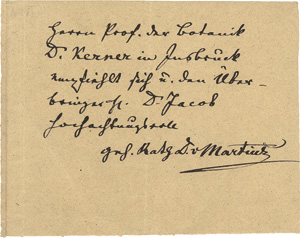 Herrn Prof. der Botanik
Dr. Kerner in Insbruck
empfiehlt sich u. den Über-
bringer H. Dr. Jacob
hochachtungsvoll
geh. Rath Dr v Martius